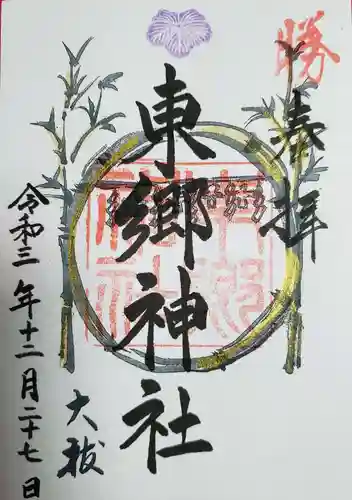 勝
奉拝
東郷神社
大祓
令和三年十二月二十七日